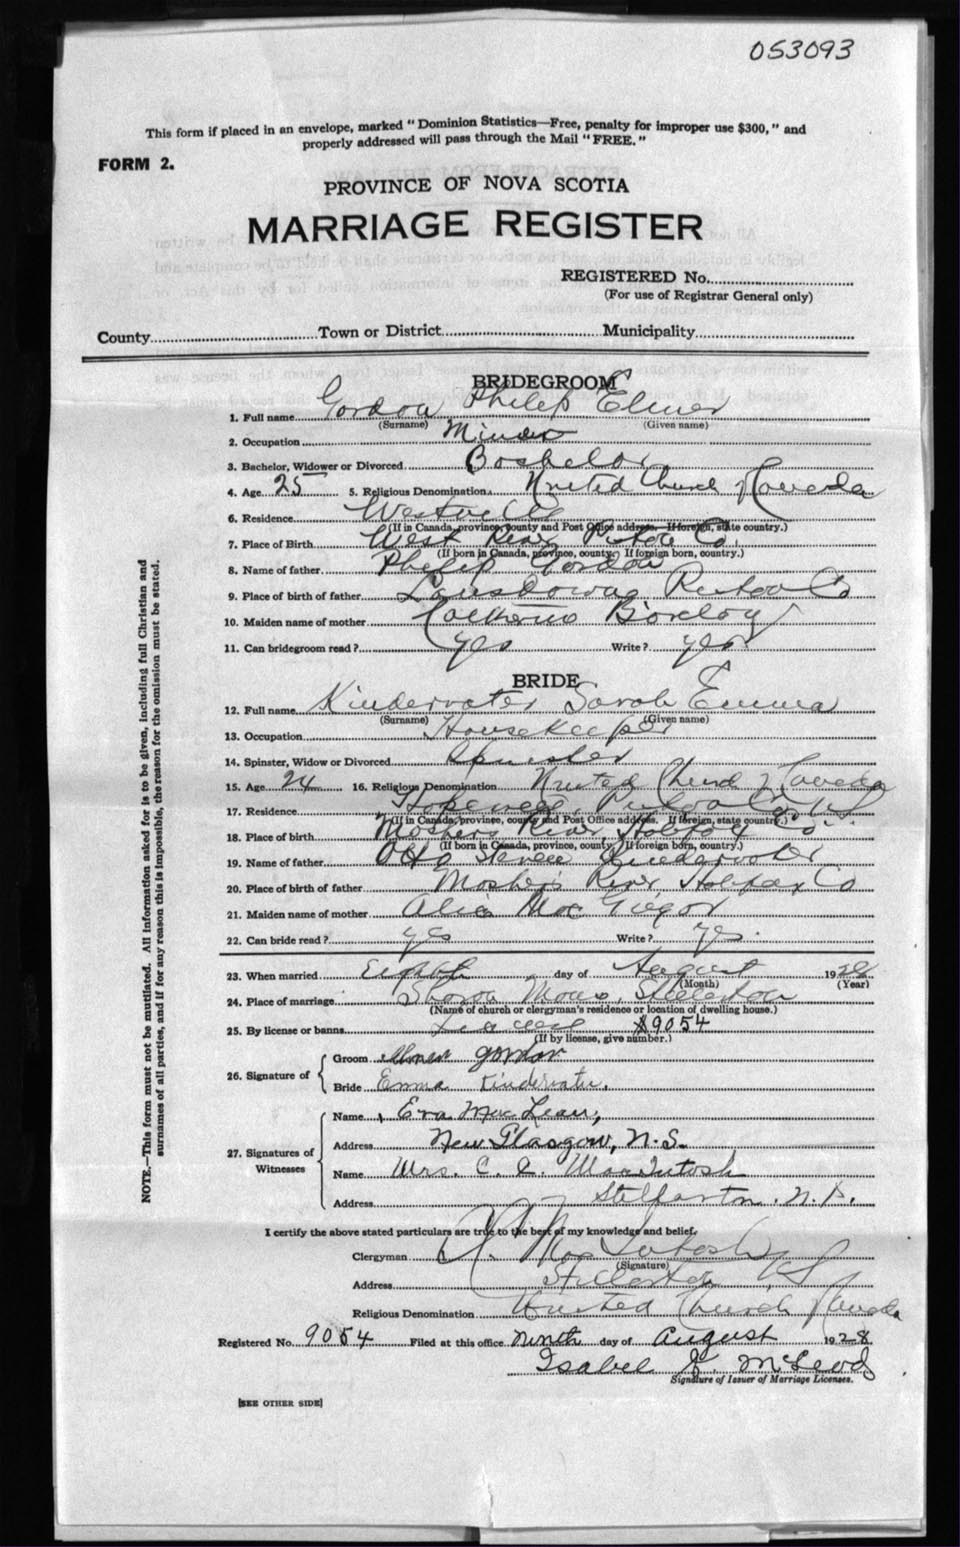 053093
This form if placed in an envelope, marked "Dominion Statistics—Free, penalty for improper use $300," and
properly addressed will pass through the Mail "FREE."
FORM 2.
PROVINCE OF NOVA SCOTIA
MARRIAGE REGISTER
REGISTERED No.
(For use of Registrar General only)
County Town or District Municipality
BRIDEGROOM
1. Full name Gordon Philip Elmer
(Surname) (Given name)
2. Occupation Miner
3. Bachelor, Widower or Divorced Bachelor
4. Age 25 5. Religious Denomination United Church of Canada
6. Residence Westville
(If in Canada, province, county and Post Office address. If foreign, state country.)
7. Place of Birth West River Pictou Co.
(If born in Canada, province, county. If foreign born, country.)
8. Name of father Philip Gordon
9. Place of birth of father Lansdowne Pictou Co
10. Maiden name of mother Catherine
11. Can bridegroom read? yes Write? yes
BRIDE
12. Full name Kindervater Sarah Emma
(Surname) (Given name)
13. Occupation Housekeeper
14. Spinster, Widow or Divorced Spinster
15. Age 24 16. Religious Denomination United Church of Canada
17. Residence Hopewell, Pictou Co. N S
(If in Canada, province, county and Post Office address. If foreign, state country.)
18. Place of birth Moshers River, Halifax Co
(If born in Canada, province, county. If foreign born, country.)
19. Name of father Otto Kindervater
20. Place of birth of father Moshers River, Halifax Co
21. Maiden name of mother Mac Gregor
22. Can bride read? yes Write? yes.
23. When married Eighth day of August 1928
(Month) (Year)
24. Place of marriage Sharon Manse, Stellarton
(Name of church or clergyman's residence or location of dwelling house.)
25. By license or banns License 9054
(If by license, give number.)
26. Signature of
Groom Elmer Gordon
Bride Emma Kindervater.
27. Signatures of Witnesses
Name Eva MacLean,
Address New Glasgow, N.S.
Name Mrs. C. C. MacIntosh
Address Stellarton. N.S.
I certify the above stated particulars are true to the best of my knowledge and belief.
Clergyman MacIntosh
(Signature)
Address Stellarton N S
Religious Denomination United Church of Canada
Registered No. 9054 Filed at this office ninth day of August 1928
Isabel J. McLeod
Signature of Issuer of Marriage Licenses.
[SEE OTHER SIDE]
NOTE.—This form must not be mutilated. All information asked for is to be given, including full Christian and
surnames of all parties, and if for any reason this is impossible, the reason for the omission must be stated.